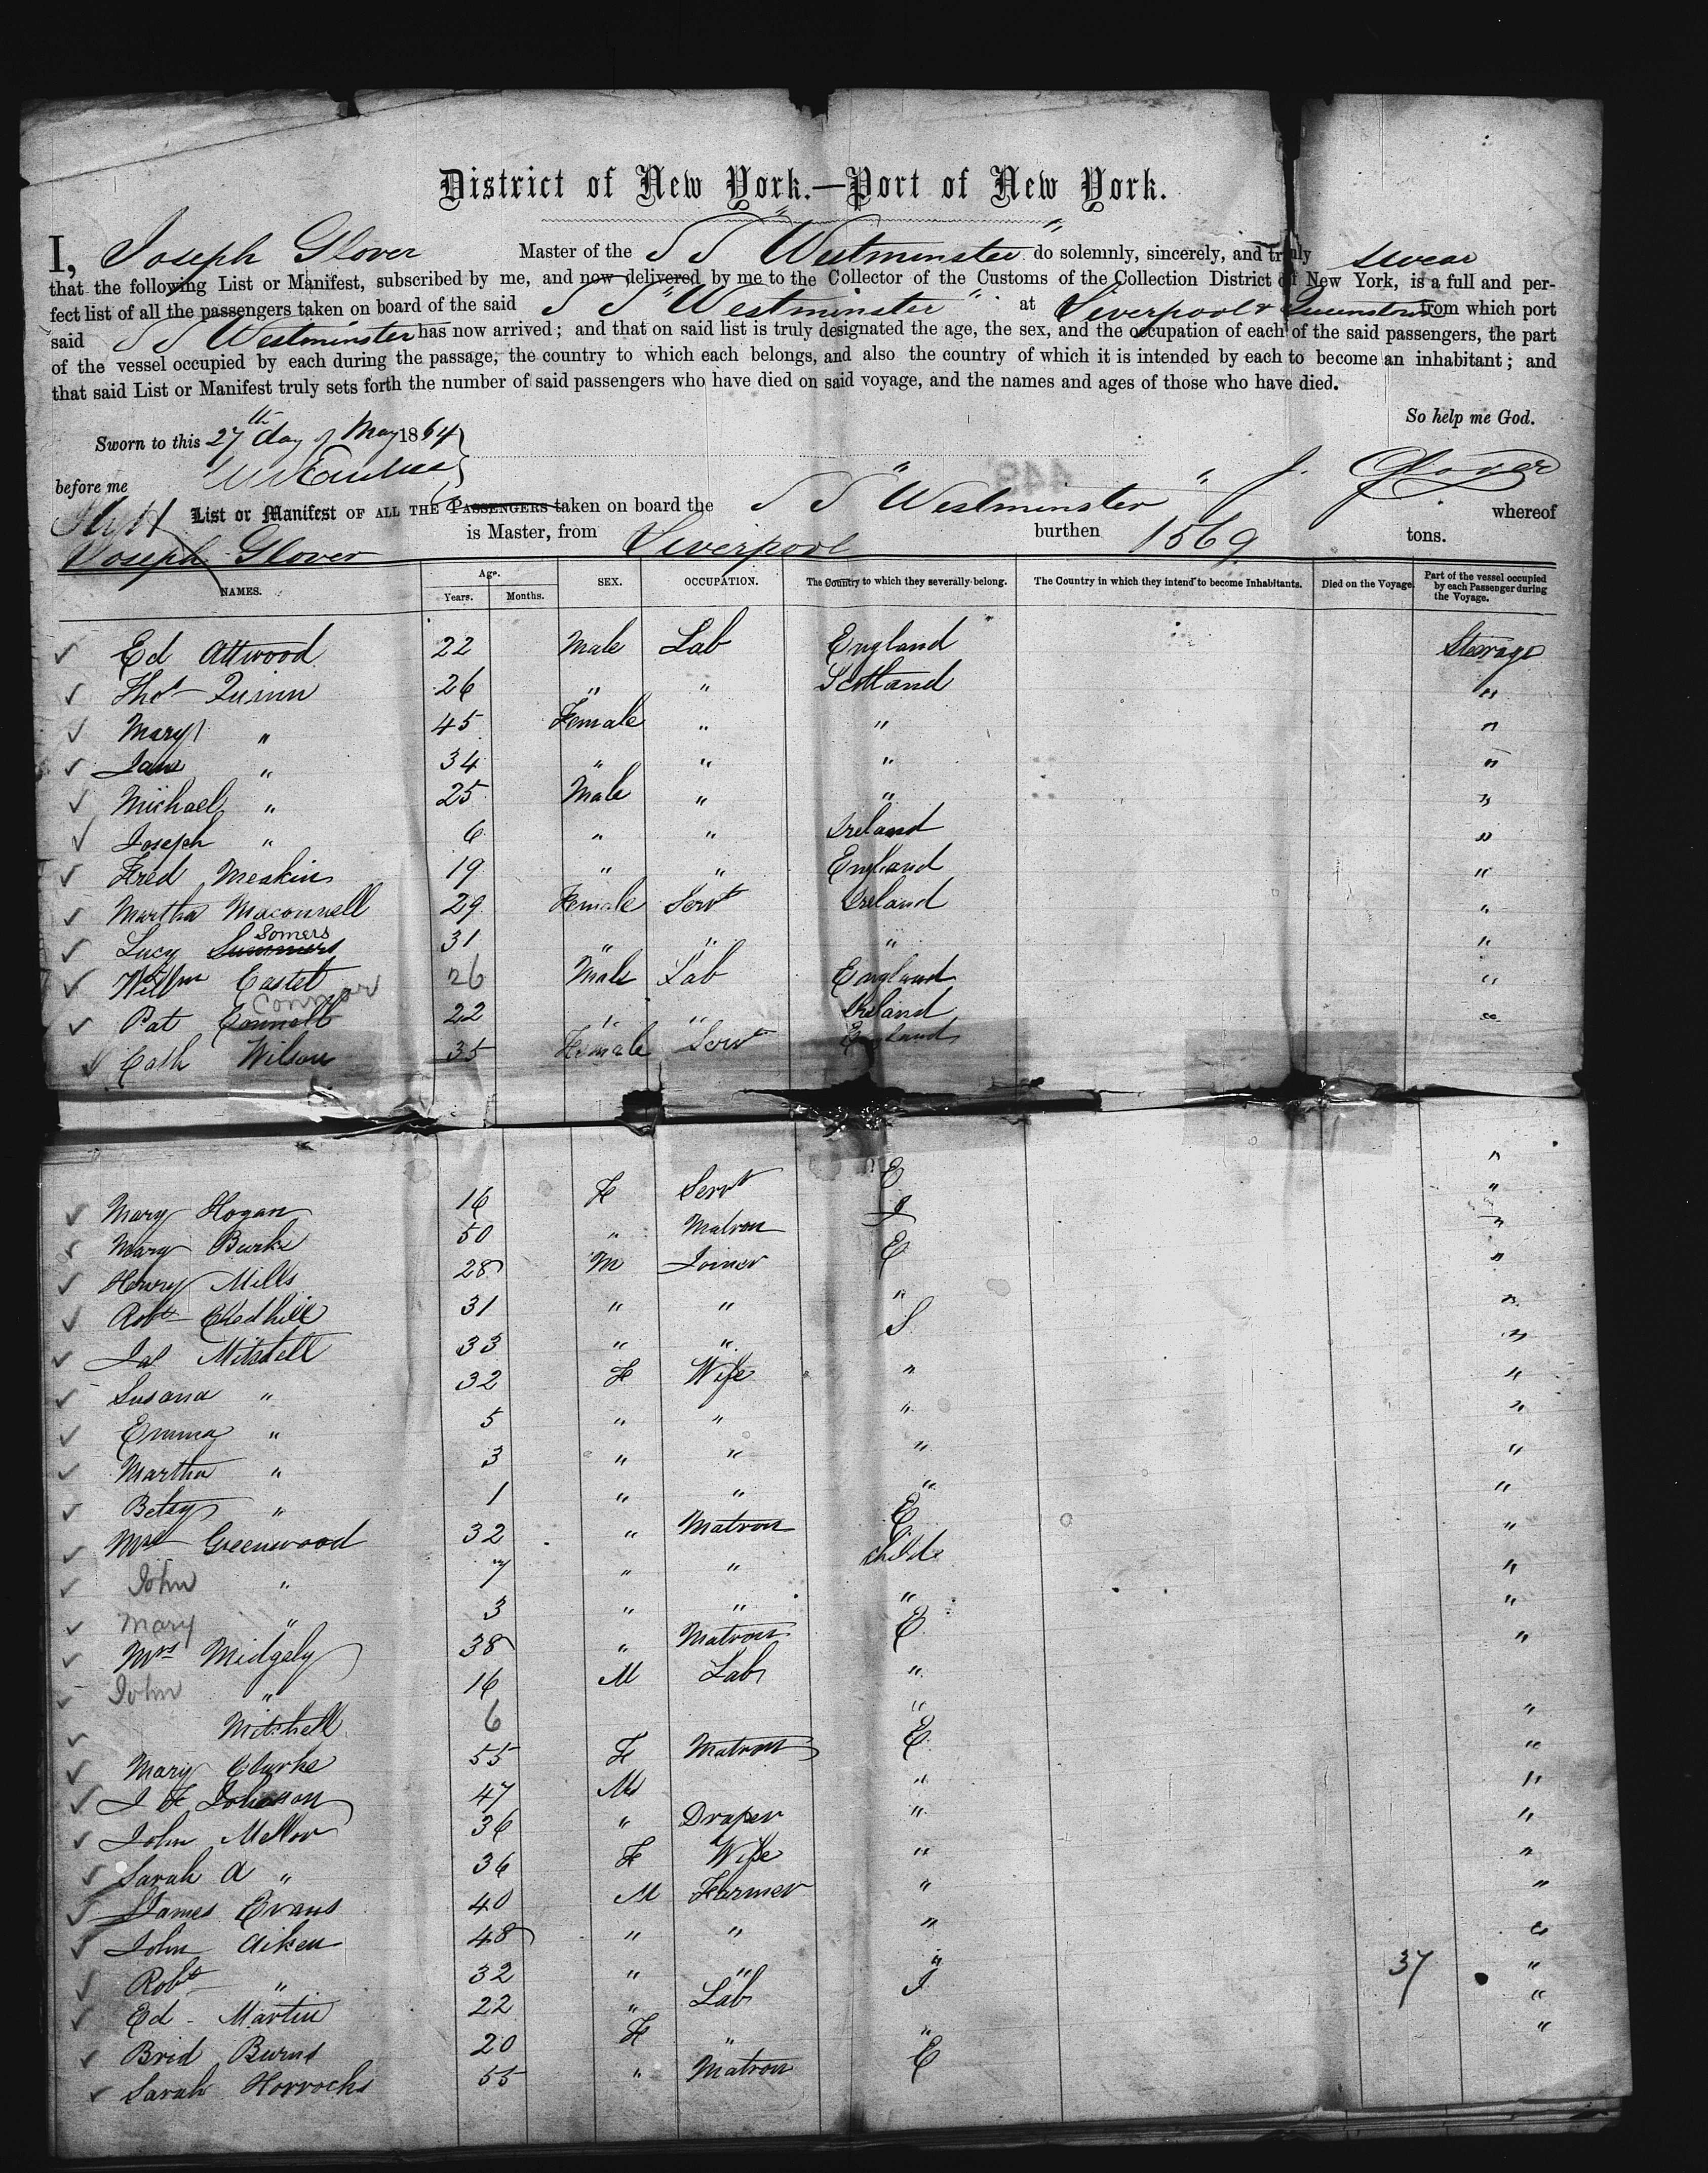 District of New York.—Port of New York.
I, Joseph Glover Master of the S S "Westminster" do solemnly, sincerely, and truly swear
that the following List or Manifest, subscribed by me, and now delivered by me to the Collector of the Customs of the Collection District of New York, is a full and per-
fect list of all the passengers taken on board of the said S S "Westminster" at Liverpool & Queenstown from which port
said S S Westminster has now arrived; and that on said list is truly designated the age, the sex, and the occupation of each of the said passengers, the part
of the vessel occupied by each during the passage, the country to which each belongs, and also the country of which it is intended by each to become an inhabitant; and
that said List or Manifest truly sets forth the number of said passengers who have died on said voyage, and the names and ages of those who have died.
So help me God.
Sworn to this 27th day of May 1864
before me J. Glover
List or Manifest OF ALL THE PASSENGERS taken on board the S S "Westminster" whereof
Joseph Glover is Master, from Liverpool burthen 1569 tons.
NAMES. Age. Years. Months. SEX. OCCUPATION. The Country to which they severally belong. The Country in which they intend to become Inhabitants. Died on the Voyage. Part of the vessel occupied by each Passenger during the Voyage.
Ed Attwood 22 Male Lab England Steerage
Thos Quinn 26 " " Scotland "
Mary " 45 Female " " "
Jane " 34 " " " "
Michael " 25 Male " " "
Joseph " 6 " " Ireland "
Fred Meakin 19 " " England "
Martha Maconnell 29 Female Servt Ireland "
Lucy Summers Somers 31 " " " "
Willm Castel 26 Male Lab England "
Pat Connell Connor 22 " " Ireland "
Cath Wilson 35 Female Servt England
Mary Hogan 16 F Servt E "
Mary Burke 50 " Matron I "
Henry Mills 28 M Joiner E "
Robt 31 " " " "
Jas Mitchell 33 " " S "
Susana " 32 F Wife " "
Emma " 5 " " " "
Martha " 3 " " " "
Betsy " 1 " " " "
Mrs Greenwood 32 " Matron E "
John " 7 " " "
Mary " 3 " " " "
Mrs Midgely 38 " Matron E "
John " 16 M Lab " "
Mitchell 6 "
Mary Clarke 55 F Matron E "
J F Johnson 47 M " "
John Mellor 36 " Draper " "
Sarah A " 36 F Wife " "
James Evans 40 M Farmer " "
John Aiken 48 " " " "
Robt " 32 " " " 37 "
Ed Martin 22 " Lab I "
Brid Burns 20 F " " "
Sarah Horrocks 55 " Matron E